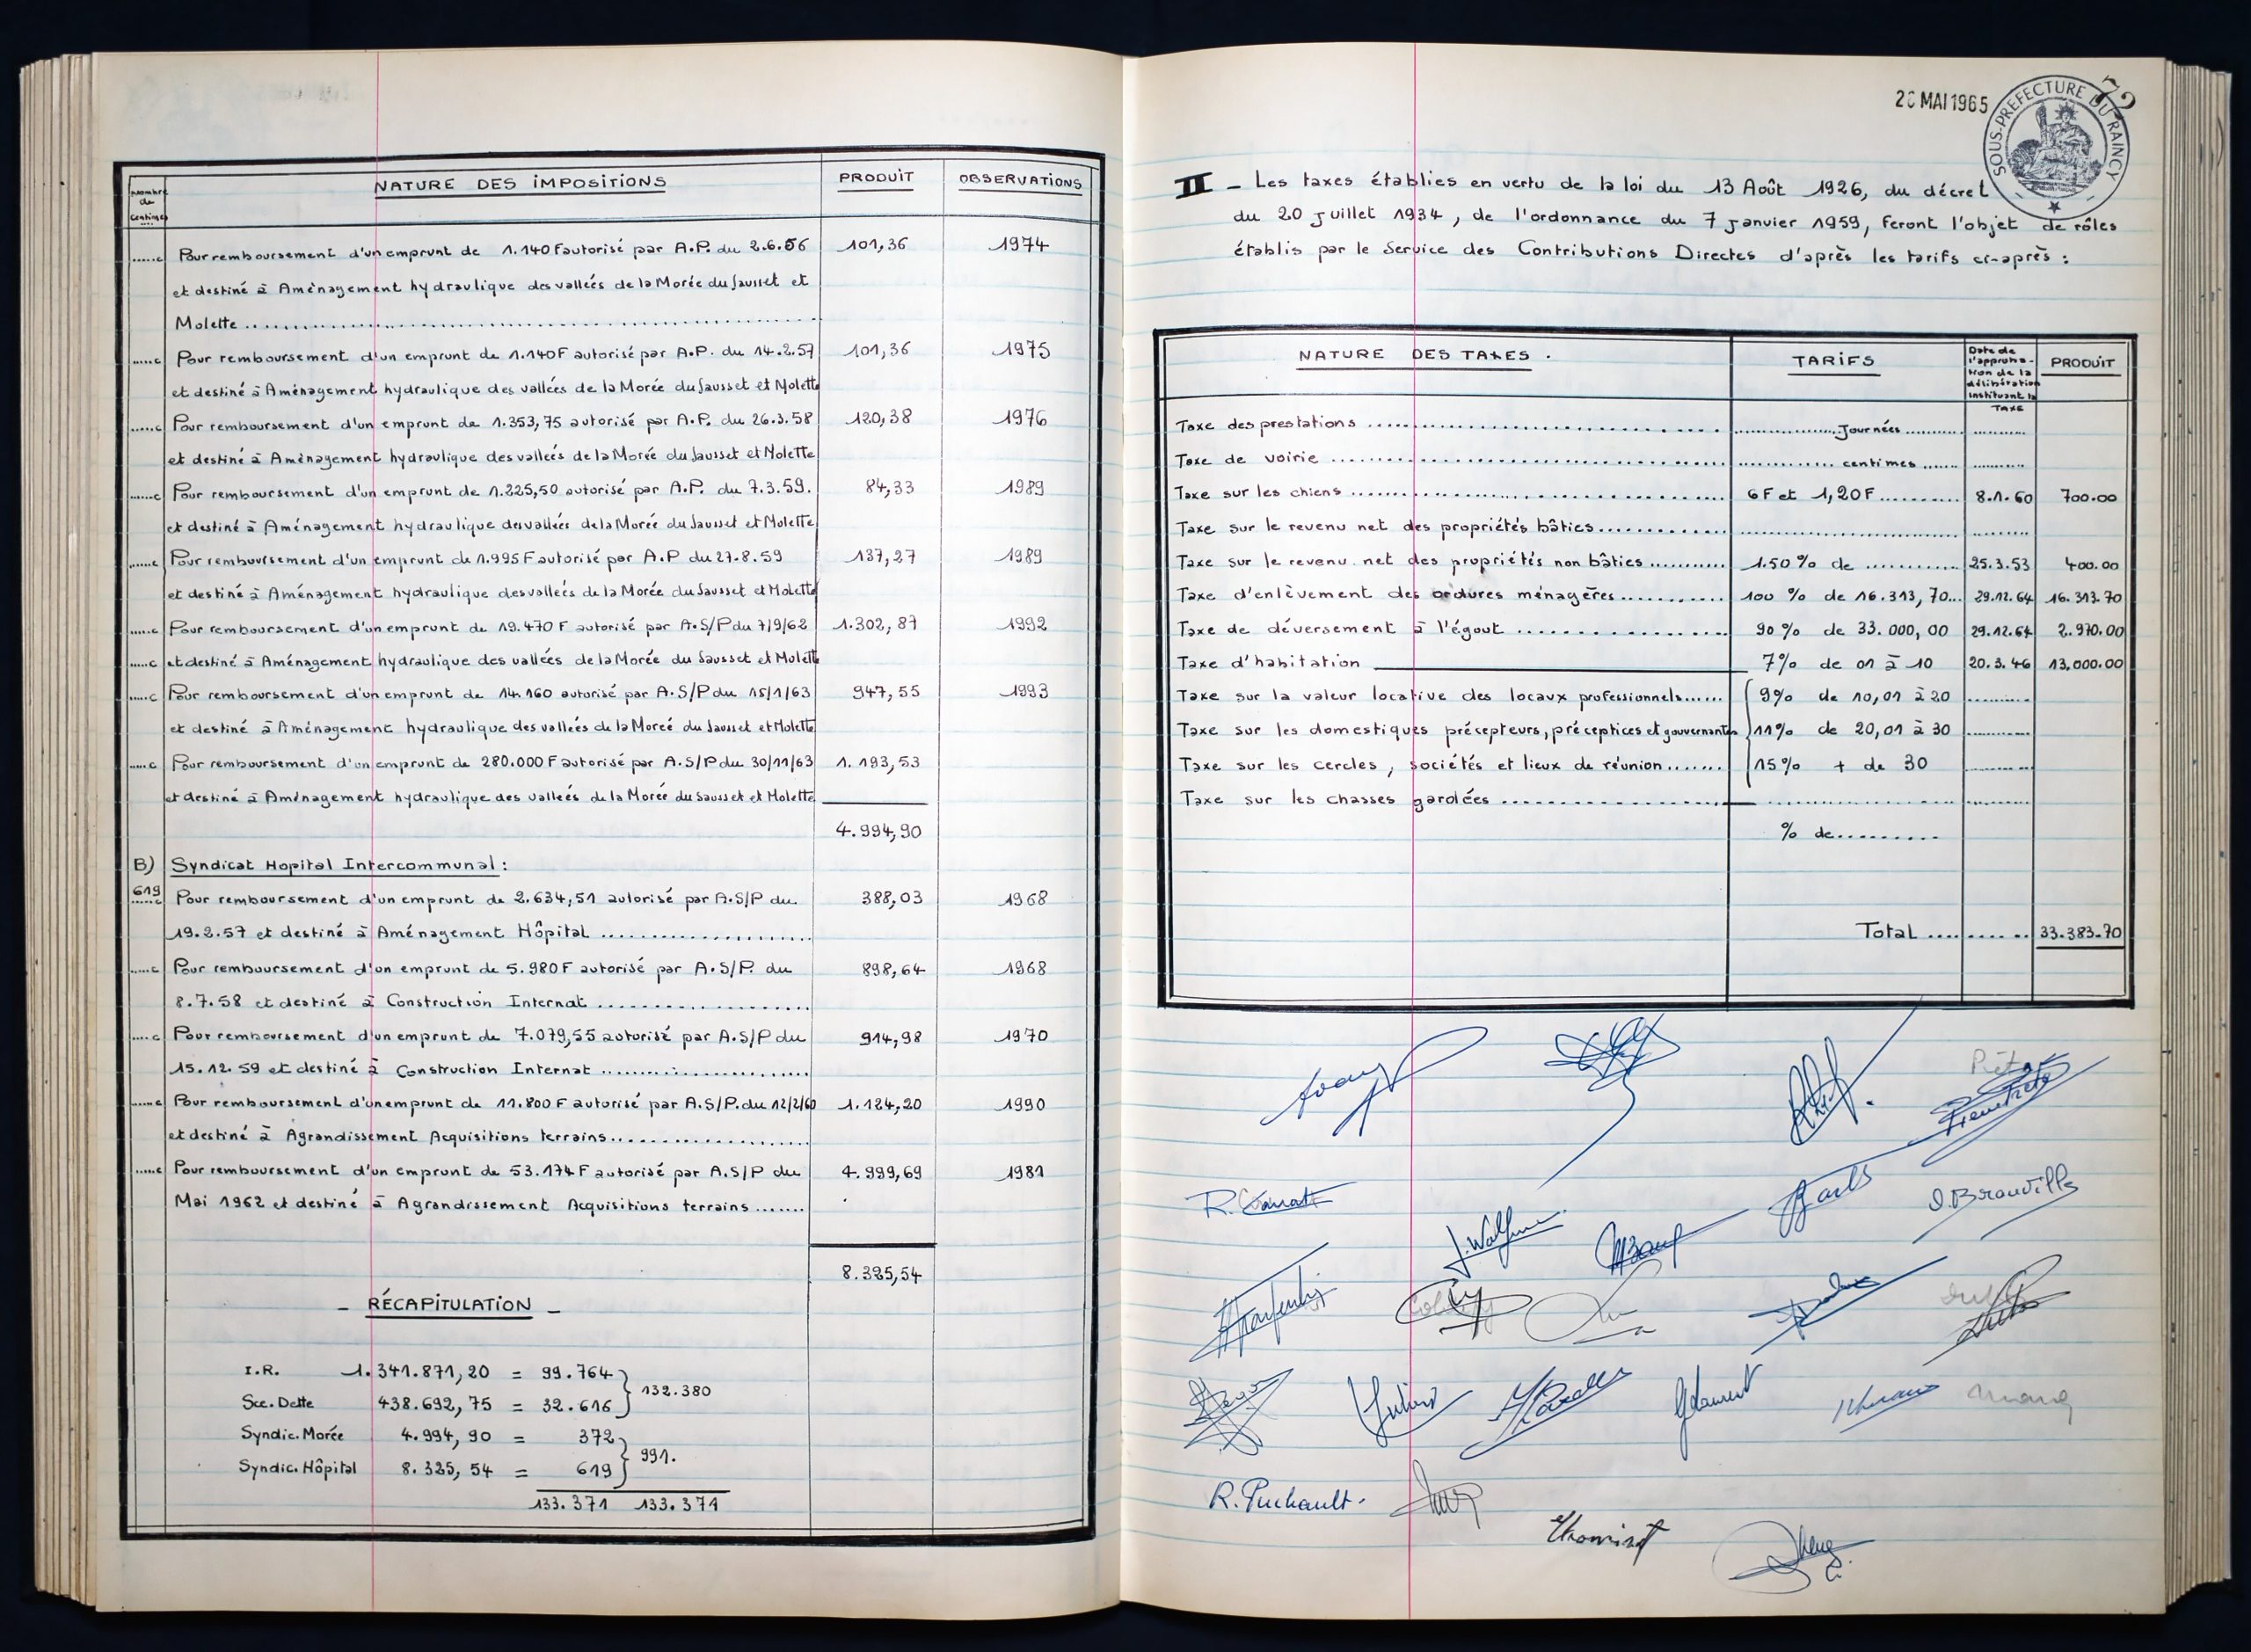 Nombre de centimes
NATURE DES IMPOSITIONS
PRODUIT
OBSERVATIONS
......c Pour remboursement d'un emprunt de 1.140F autorisé par A.P. du 2.6.56 101,36 1974
et destiné à Aménagement hydraulique des vallées de la Morée du Sausset et
Molette..........
......c Pour remboursement d'un emprunt de 1.140F autorisé par A.P. du 14.2.57 101,36 1975
et destiné à Aménagement hydraulique des vallées de la Morée du Sausset et Molette
......c Pour remboursement d'un emprunt de 1.353,75 autorisé par A.P. du 26.3.58 120,38 1976
et destiné à Aménagement hydraulique des vallées de la Morée du Sausset et Molette
......c Pour remboursement d'un emprunt de 1.225,50 autorisé par A.P. du 7.3.59. 84,33 1989
et destiné à Aménagement hydraulique des vallées de la Morée du Sausset et Molette
......c Pour remboursement d'un emprunt de 1.995F autorisé par A.P du 27.8.59 137,27 1989
et destiné à Aménagement hydraulique des vallées de la Morée du Sausset et Molette
......c Pour remboursement d'un emprunt de 19.470 F autorisé par A.S/P du 7/9/62 1.302,87 1992
......c et destiné à Aménagement hydraulique des vallées de la Morée du Sausset et Molette
......c Pour remboursement d'un emprunt de 14.160 autorisé par A.S/P du 15/1/63 947,55 1993
et destiné à Aménagement hydraulique des vallées de la Morée du Sausset et Molette
......c Pour remboursement d'un emprunt de 280.000 F autorisé par A.S/P du 30/11/63 1.193,53
et destiné à Aménagement hydraulique des vallées de la Morée du Sausset et Molette
4.994,90
B) Syndicat Hopital Intercommunal :
619
......c Pour remboursement d'un emprunt de 2.634,51 autorisé par A.S/P du 388,03 1968
19.2.57 et destiné à Aménagement Hôpital ..........
......c Pour remboursement d'un emprunt de 5.980F autorisé par A.S/P. du 898,64 1968
8.7.58 et destiné à Construction Internat ..........
......c Pour remboursement d'un emprunt de 7.079,55 autorisé par A.S/P du 914,98 1970
15.12.59 et destiné à Construction Internat ..........
......c Pour remboursement d'un emprunt de 11.800 F autorisé par A.S/P. du 12/2/60 1.124,20 1990
et destiné à Agrandissement Acquisitions terrains..........
......c Pour remboursement d'un emprunt de 53.174 F autorisé par A.S/P du 4.999,69 1981
Mai 1962 et destiné à Agrandissement Acquisitions terrains.......
8.325,54
- RÉCAPITULATION -
I.R. 1.341.871,20 = 99.764
132.380
Sce. Dette 438.692,75 = 32.616
Syndic. Morée 4.994,90 = 372
991.
Syndic. Hôpital 8.325,54 = 619
133.371 133.371
26 MAI 1965
72
SOUS-PREFECTURE DU RAINCY
II - Les taxes établies en vertu de la loi du 13 Août 1926, du décret
du 20 juillet 1934, de l'ordonnance du 7 janvier 1959, feront l'objet de rôles
établis par le Service des Contributions Directes d'après les tarifs ci-après :
NATURE DES TAXES.
TARIFS
Date de l'approbation de la délibération instituant la TAXE
PRODUIT
Taxe des prestations .......... Journées..........
Taxe de voirie .......... centimes..........
Taxe sur les chiens .......... 6F et 1,20F .......... 8.1.60 700.00
Taxe sur le revenu net des propriétés bâties..........
Taxe sur le revenu net des propriétés non bâties .......... 1.50% de .......... 25.3.53 400.00
Taxe d'enlèvement des ordures ménagères.......... 100 % de 16.313,70... 29.12.64 16.313.70
Taxe de déversement à l'égout .......... 90% de 33.000,00 29.12.64 2.970.00
Taxe d'habitation 7% de 01 à 10 20.3.46 13,000.00
Taxe sur la valeur locative des locaux professionnels...... 9% de 10,01 à 20
Taxe sur les domestiques précepteurs, préceptices et gouvernantes 11% de 20,01 à 30
Taxe sur les cercles, sociétés et lieux de réunion....... 15% + de 30
Taxe sur les chasses gardées ..........
% de..........
Total .......... 33.383.70
J. Brouville
R. Puchault.